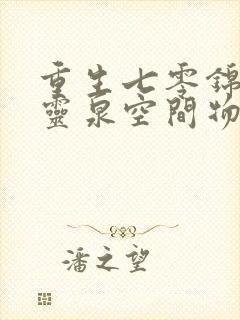 重生七零錦
靈泉空間物
潘之望